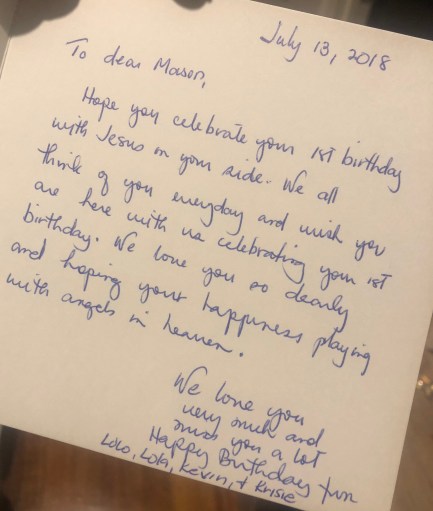 July 13, 2018
To dear Mason,
Hope you celebrate your 1st birthday
with Jesus on your side. We all
think of you everyday and wish you
are here with us celebrating your 1st
birthday. We love you so dearly
and hoping your happiness playing
with angels in heaven.
We love you
very much and
miss you a lot
Happy Birthday fun
Lolo, Lola, Kevin, + Krisie